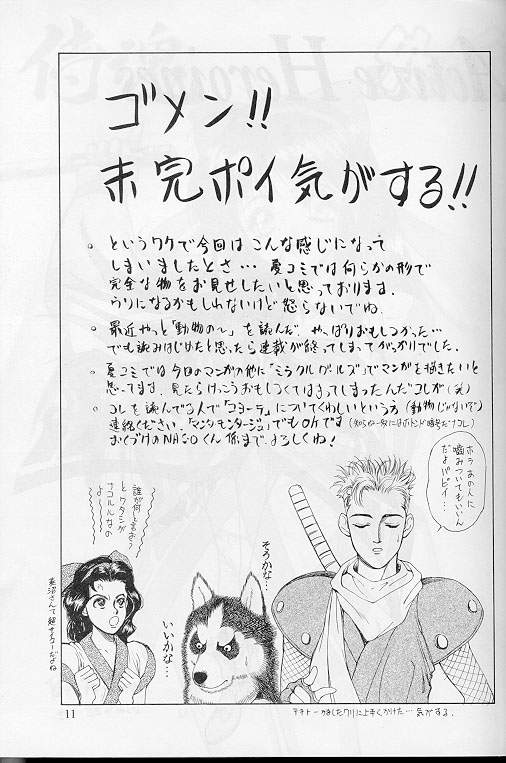 ゴメン!!
未完ポイ気がする!!
。というワケで今回は こんな感じになって
しまいましたとさ… 夏コミでは何らかの形で
完全な物をお見せしたいと思っております.
ウリになるかもしれないけど怒らないでね.
。最近やっと「動物の〜」を読んだ. やっぱりおもしろかった…
でも読みはじめたと思ったら連載が終ってしまってがっかりでした.
。夏コミでは今回のマンガの他に「ミラクルガールズ」でマンガを描きたいと
思ってます. 見たらけっこうおもしろくてはまってしまったんだコレが(笑)
。コレを読んでる人で「コヨーテ」についてくわしいという方(動物じゃないぞ)
連絡ください.「マンガモンタージュ」でもOKです
おくづけのNASOくん係まで. よろしくね!
ホラあの人に
噛みついてもいいん
だよパピイ…
誰が何と言おう
とワタシが
ナコルルなの
よ〜
そうかな…
いいかな…
11
気がする.